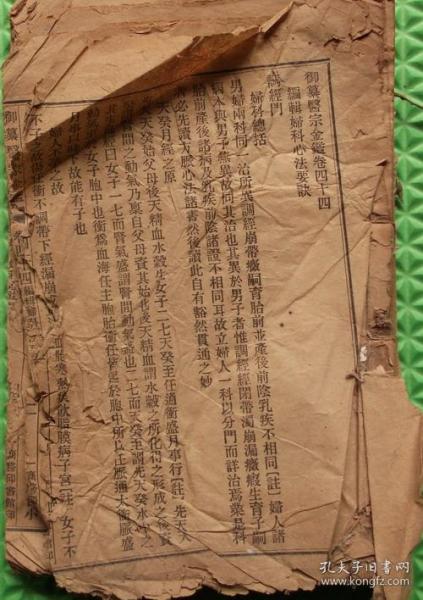 御纂醫宗金鑑卷四十四
編輯婦科心法要訣
調經門
婦科總括
男婦兩科同一治所異調經崩帶癥嗣育胎前並產後前陰乳疾不相同【註】婦人諸
病本與男子無異故同其治也其異於男子者惟調經經閉帶濁崩漏癥瘕生育子嗣
胎前產後諸病及乳疾前陰諸證不相同耳故立婦人一科以分門而詳治焉業是科
必先讀方脈心法諸書然後讀此自有豁然貫通之妙
天癸月經之原
天癸始父母後天精血水穀生女子二七天癸至任通衝盛月事行【註】先天天
間之動氣乃禀自父母資其始也後天精血謂水穀之所化得之形成之後資
經曰女子一七而腎氣盛謂腎間動氣盛也二七而天癸至謂先天癸水中之
女子胞中也衝為血海任主胞胎衝任皆起於胞中所以任脈通太衝脈盛
月事以時下故能有子也
婦人不孕之故
不子之故傷衝任不調帶下經漏崩
寒熱與飲脂膜病子宮【註】女子不
御纂醫
四十四
商務印書館印
孔夫子旧书网
www.kongfz.com